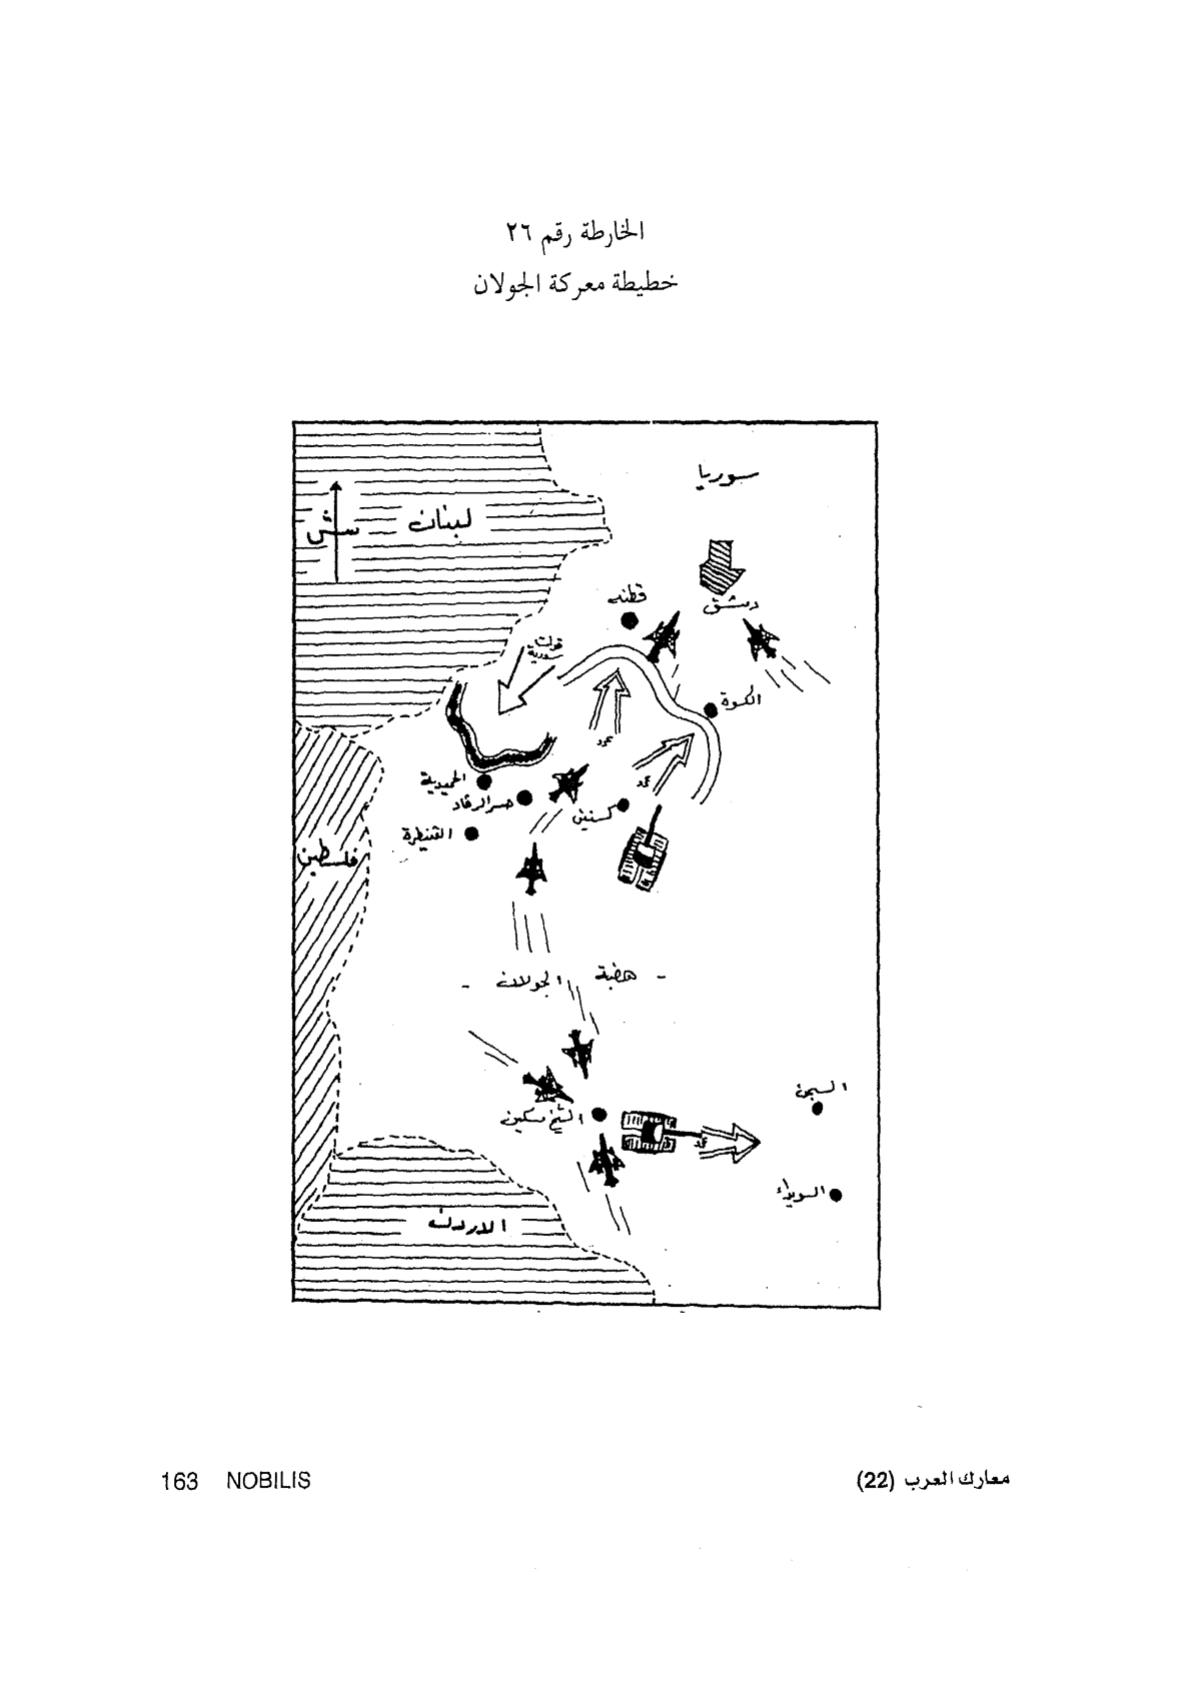 الخارطة رقم ٢٦
خطيطة معركة الجولان
سوريا
لبنان
قطنه
دمشق
قوات
سورية
الكسوة
الحميدية
جسر الرقاد
القنيطرة
فلسطين
هضبة الجولان
السجن
الشيخ مسكين
السويداء
الاردن
163 NOBILIS
معارك العرب (22)